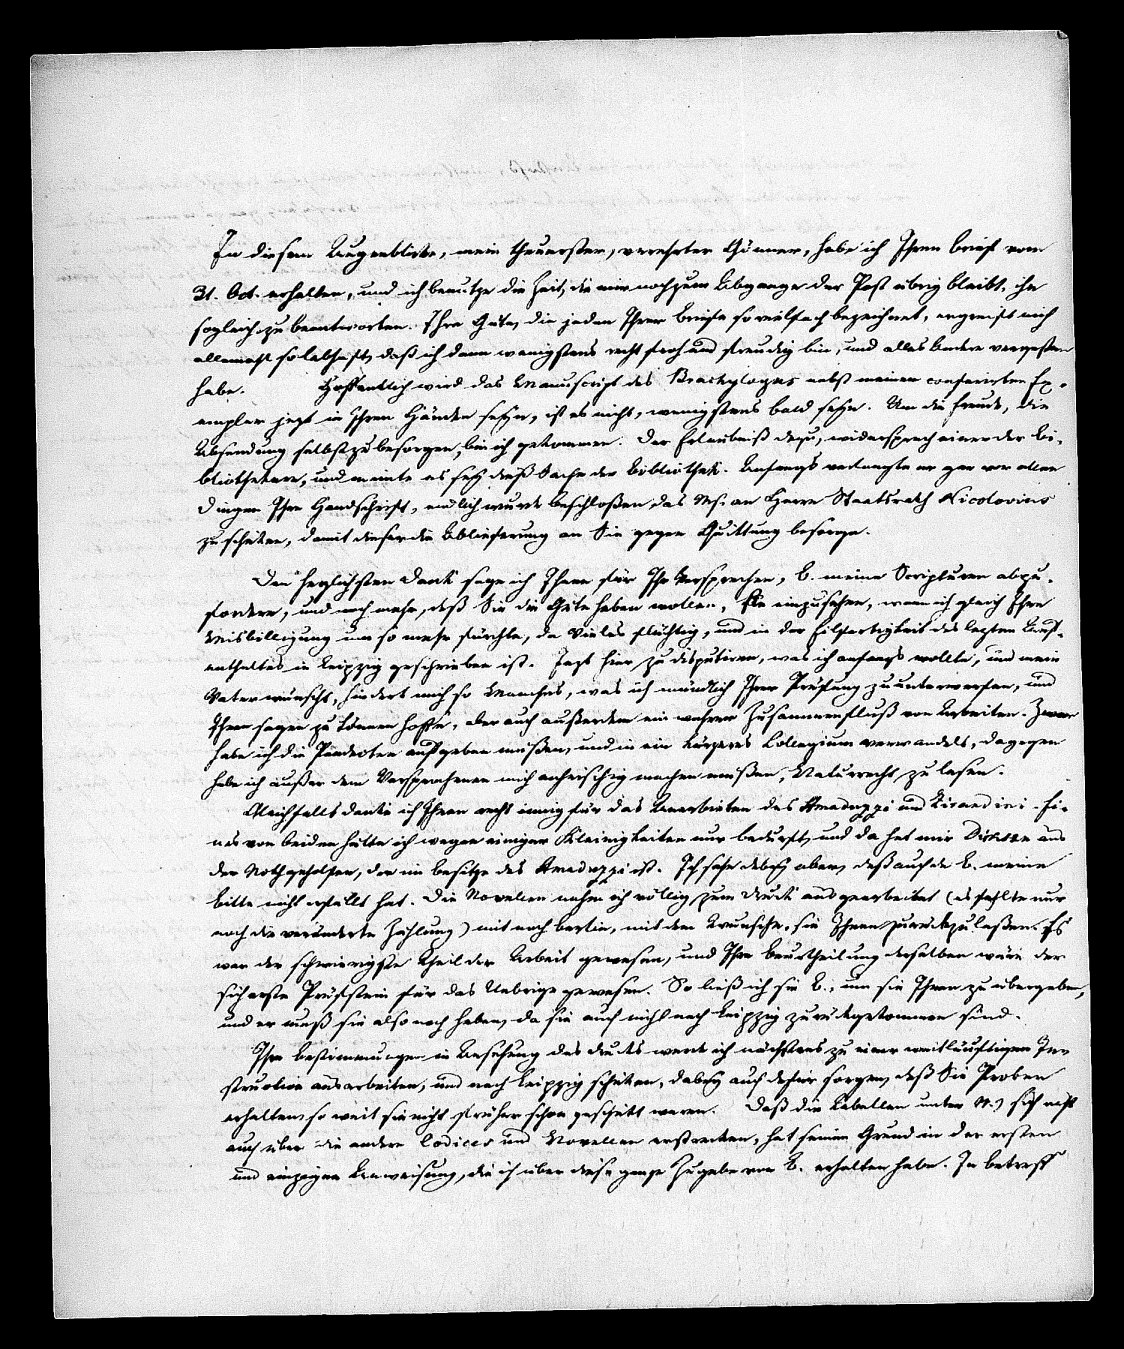 In diesem Augenblicke, mein theuerster, verehrter Gönner, habe ich Ihren Brief vom
31. Oct. erhalten, und ich benutze die Zeit, die mir noch zum Abgange der Post übrig bleibt, ihn
sogleich zu beantworten. Ihre Güte, die jeden Ihrer Briefe so vielfach bezeichnet, ergreift mich
allemahl so lebhaft, daß ich dann wenigstens recht froh und freudig bin, und alles Andere vergessen
habe. Hoffentlich wird das Manuscript des Brachylogus nebst meinem conferirten Ex-
emplar jetzt in Ihren Händen seyn, ist es nicht, wenigstens bald seyn. Um die Freude, die
Absendung selbst zu besorgen, bin ich gekommen. Der Erlaubniß dazu, widersprach einer der Bi-
bliothekare, und meinte es sey dieß Sache der Bibliothek. Anfangs verlangte er gar vor allen
Dingen Ihre Handschrift, endlich wurde beschloßen, das Ms. an Herrn Staatsrath Nicolovius
zu schicken, damit dieser die Ablieferung an Sie gegen Quittung besorge.
Den herzlichsten Dank sage ich Ihnen für Ihr Versprechen, B. meine Scripturen abzu-
fordern, und noch mehr, daß Sie die Güte haben wollen, sie einzusehen, wenn ich gleich Ihre
Misbilligung um so mehr fürchte, da Vieles flüchtig, und in der Eilfertigkeit des letzten Auf-
enthaltes in Leipzig geschrieben ist. Jetzt hier zu disputiren, was ich anfangs wollte, und mein
Vater wünscht, hindert mich so Manches, was ich mündlich Ihrer Prüfung zu unterwerfen, und
Ihnen sagen zu können hoffe, aber auch außerdem ein wahrer Zusammenfluß von Arbeiten. Zwar
habe ich die Pandecten aufgeben müßen, und in ein kürzeres Collegium verwandelt, dagegen
habe ich außer dem Versprochenen mich anheischig machen müßen, Naturrecht zu lesen.
Gleichfalls danke ich Ihnen recht innig für das Anerbieten des Amaduzzi und Ei-
nes von beiden hätte ich wegen einiger Kleinigkeiten nur bedurft, und da hat mir Dirksen aus
der Noth geholfen, der im Besitze des Amaduzzi ist. Ich sehe dabey aber, daß auch B. meine
Bitte nicht erfüllt hat. Die Novellen nahm ich völlig zum Druck ausgearbeitet (es fehlte nur
noch die veränderte Zählung) mit nach Berlin, mit dem Wunsche, sie Ihnen zurückzulaßen. Es
war der schwierigste Theil der Arbeit gewesen, und Ihre Beurtheilung derselben wäre der
sicherste Prüfstein für das Uebrige gewesen. So ließ ich sie B., um sie Ihnen zu übergeben,
und er muß sie also noch haben, da sie auch nicht nach Leipzig zurückgekommen sind.
Ihre Bestimmungen in Ansehung des Drucks werde ich nächstens zu einer weitläuftigen In-
struction ausarbeiten, und nach Leipzig schicken, dabey auch dafür sorgen, daß Sie Proben
erhalten, so weit sie nicht früher schon geschickt waren. Daß die Tabellen unter sich nicht
auch über die andern Codices und Novellen erstrecken, hat seinen Grund in der ersten
und einzigen Anweisung, die ich über diese ganze Zugabe von B. erhalten habe. In Betreff